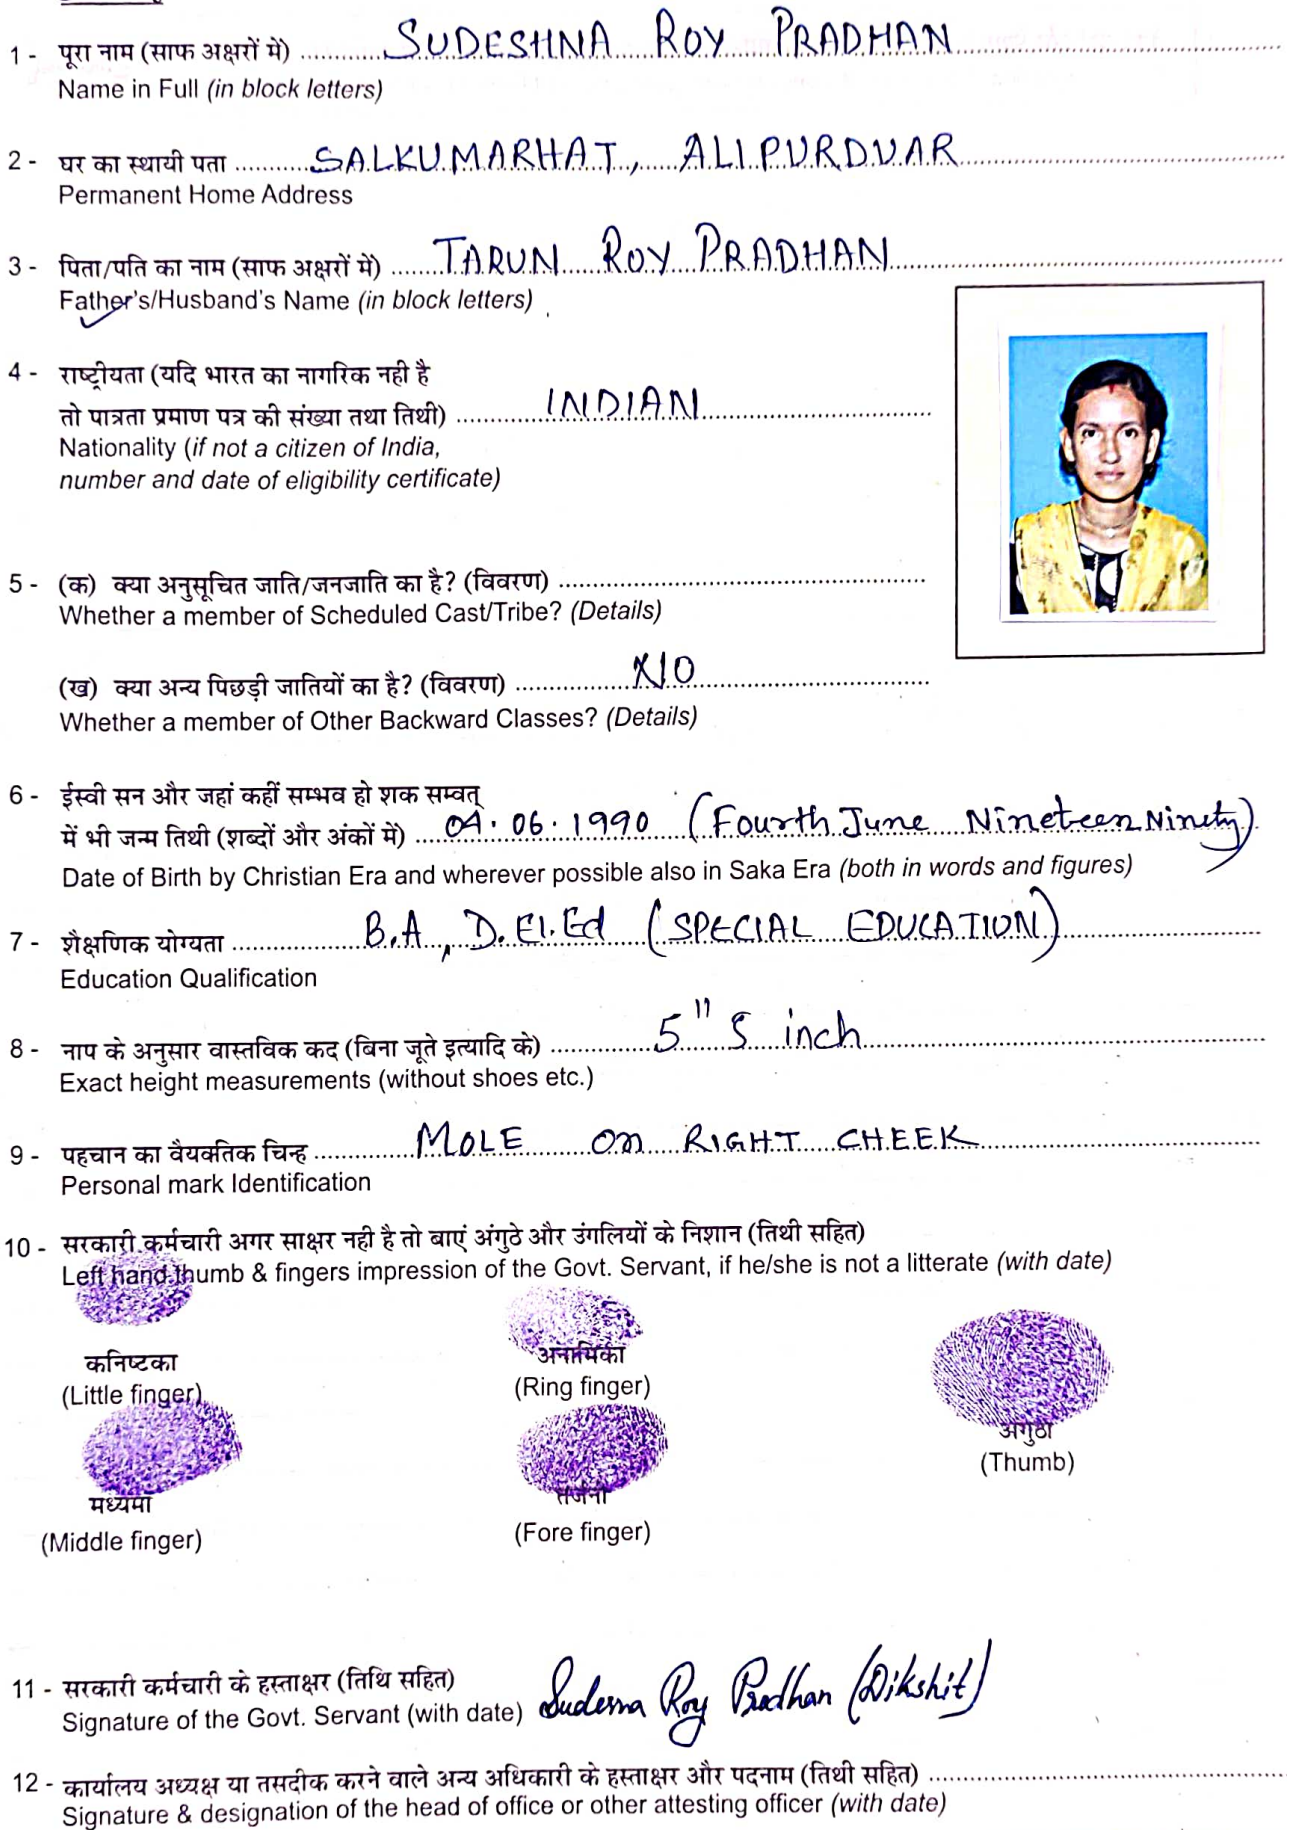 1 - पूरा नाम (साफ अक्षरों में) SUDESHNA ROY PRADHAN
Name in Full (in block letters)
2 - घर का स्थायी पता SALKUMARHAT, ALIPURDUAR
Permanent Home Address
3 - पिता/पति का नाम (साफ अक्षरों में) TARUN ROY PRADHAN
Father's/Husband's Name (in block letters)
4 - राष्ट्रीयता (यदि भारत का नागरिक नही है
तो पात्रता प्रमाण पत्र की संख्या तथा तिथी) INDIAN
Nationality (if not a citizen of India,
number and date of eligibility certificate)
5 - (क) क्या अनुसूचित जाति/जनजाति का है? (विवरण)
Whether a member of Scheduled Cast/Tribe? (Details)
(ख) क्या अन्य पिछड़ी जातियों का है? (विवरण) NO
Whether a member of Other Backward Classes? (Details)
6 - ईस्वी सन और जहां कहीं सम्भव हो शक सम्वत्
में भी जन्म तिथी (शब्दों और अंकों में) 04.06.1990 (Fourth June Nineteen Ninety)
Date of Birth by Christian Era and wherever possible also in Saka Era (both in words and figures)
7 - शैक्षणिक योग्यता B.A, D.El.Ed (SPECIAL EDUCATION)
Education Qualification
8 - नाप के अनुसार वास्तविक कद (बिना जूते इत्यादि के) 5" 5 inch
Exact height measurements (without shoes etc.)
9 - पहचान का वैयक्तिक चिन्ह MOLE on RIGHT CHEEK
Personal mark Identification
10 - सरकारी कर्मचारी अगर साक्षर नही है तो बाएं अंगुठे और उंगलियों के निशान (तिथी सहित)
Left hand thumb & fingers impression of the Govt. Servant, if he/she is not a litterate (with date)
कनिष्टका
(Little finger)
अनामिका
(Ring finger)
अंगुठा
(Thumb)
मध्यमा
(Middle finger)
तर्जनी
(Fore finger)
11 - सरकारी कर्मचारी के हस्ताक्षर (तिथि सहित)
Signature of the Govt. Servant (with date) Sudesna Roy Pradhan (Dikshit)
12 - कार्यालय अध्यक्ष या तसदीक करने वाले अन्य अधिकारी के हस्ताक्षर और पदनाम (तिथी सहित)
Signature & designation of the head of office or other attesting officer (with date)